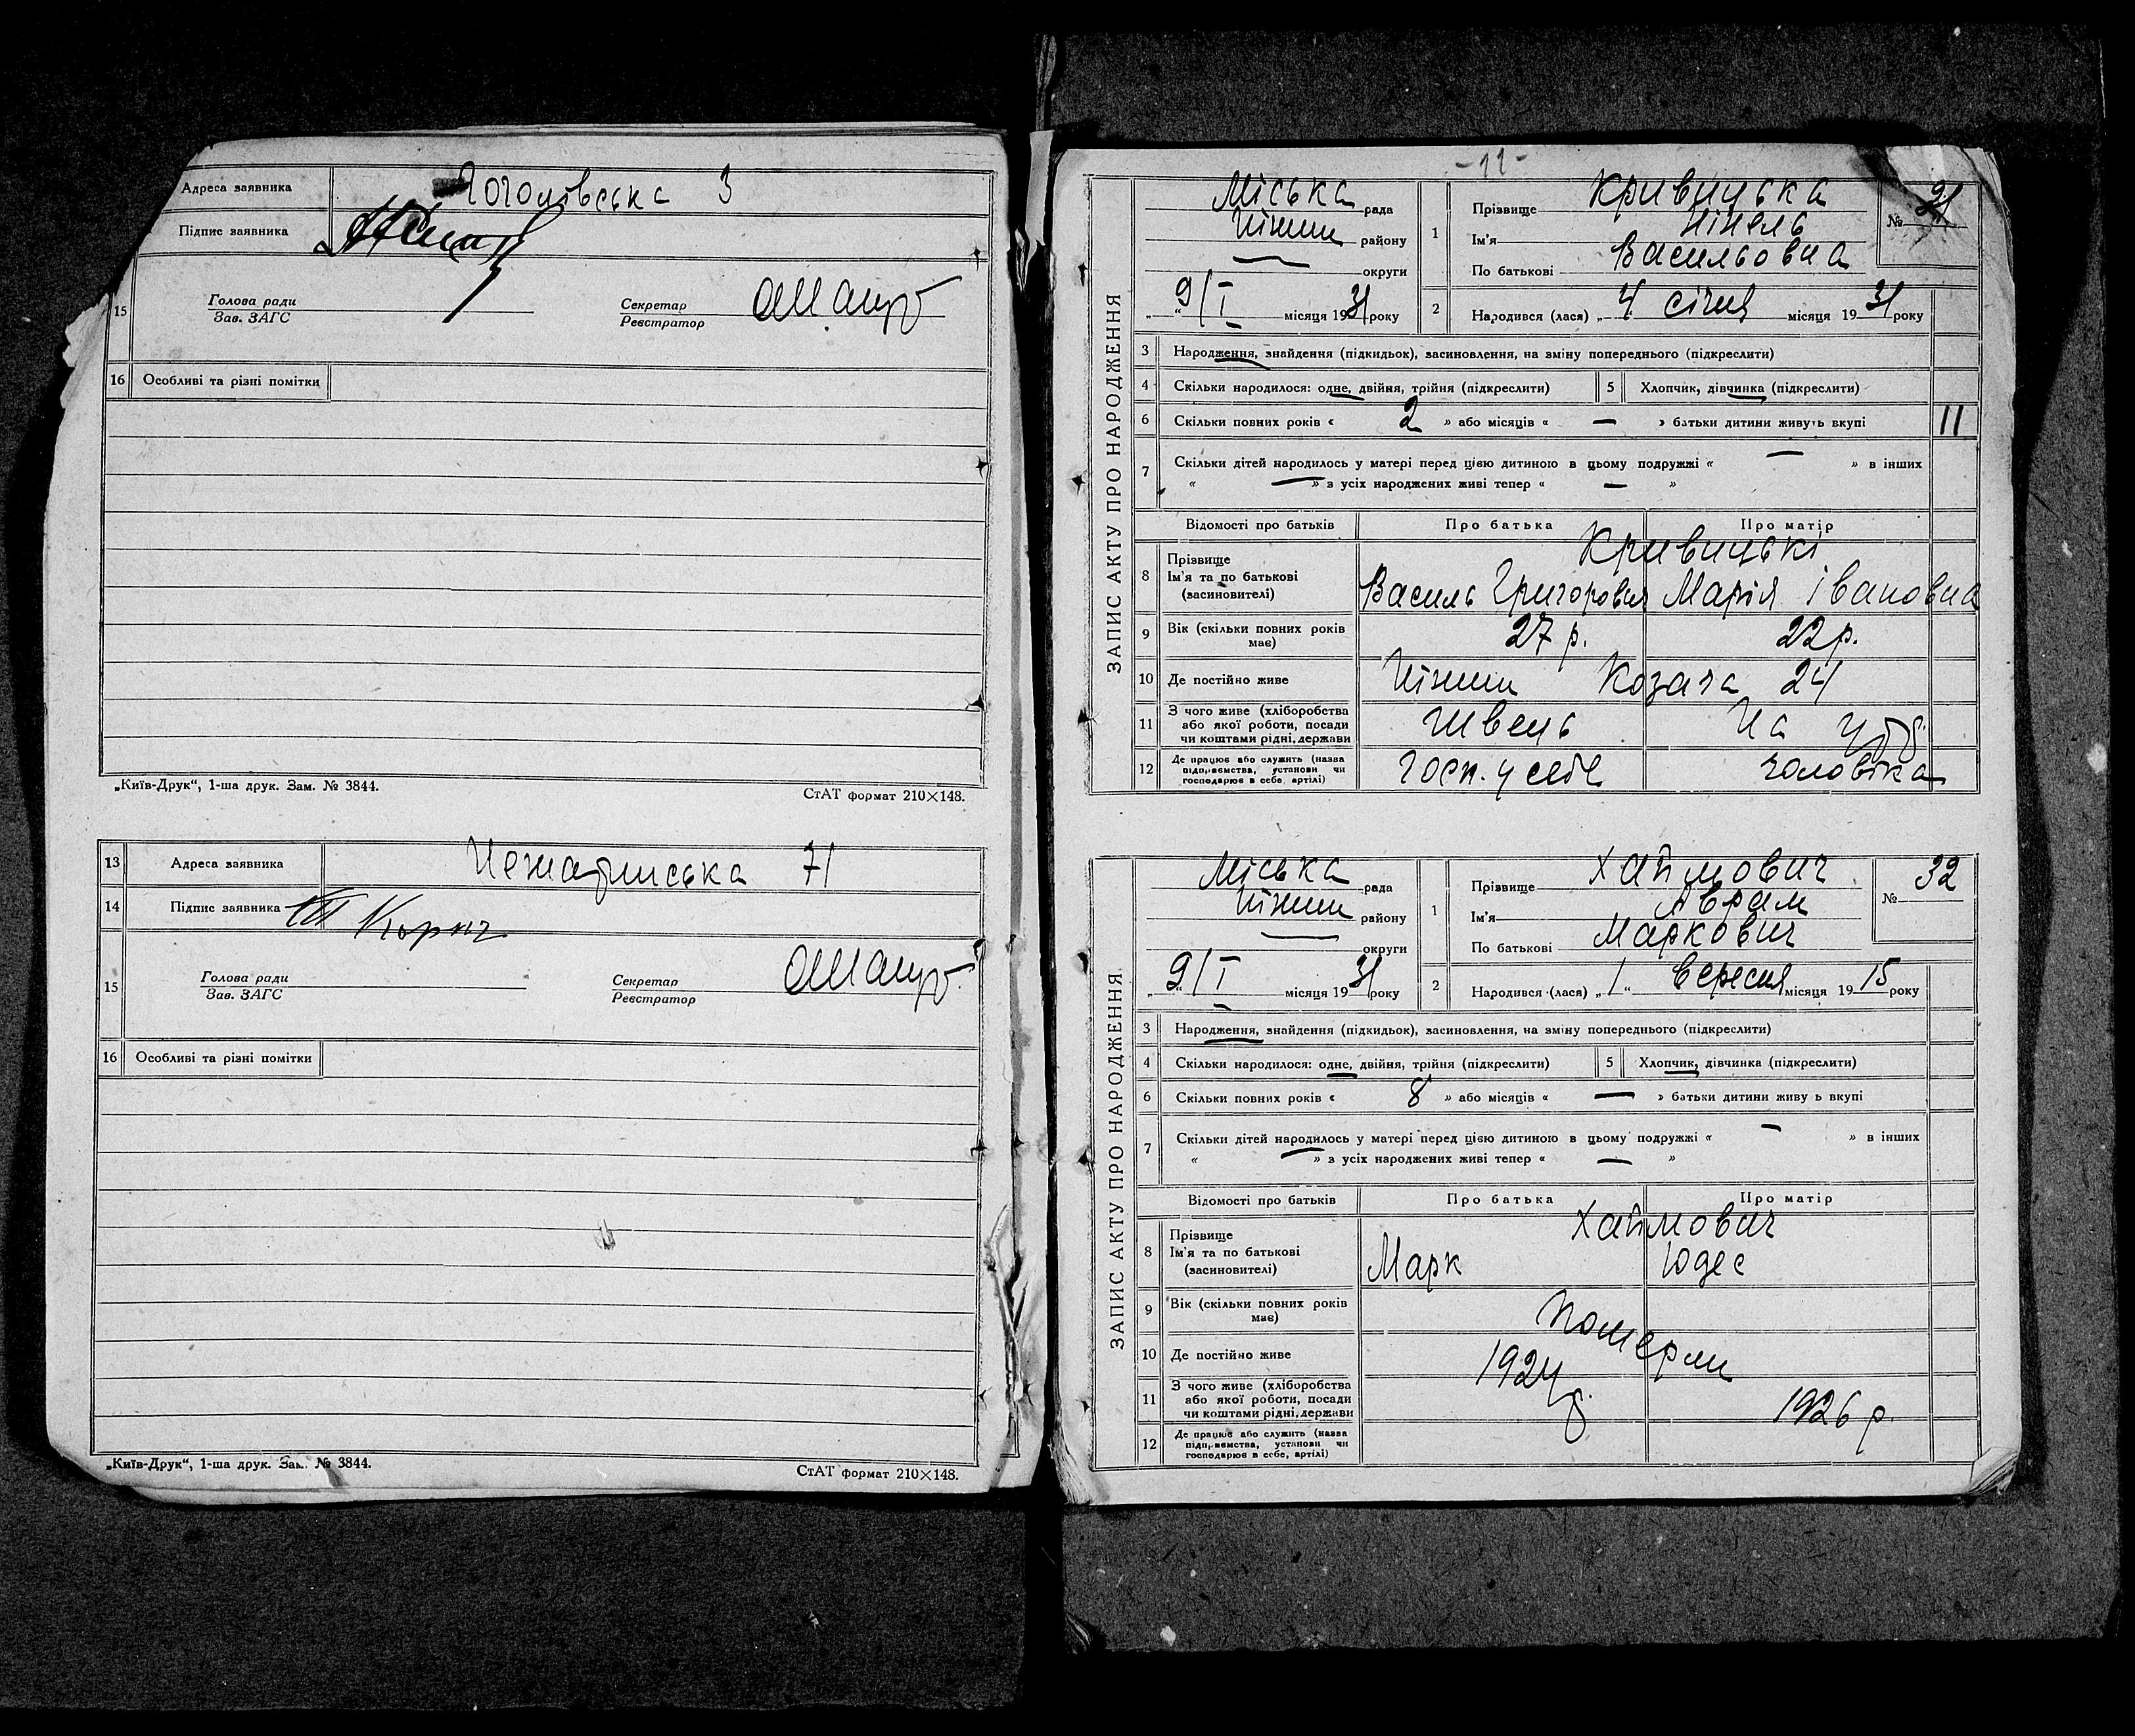 Адреса заявника Гоголівська 3
Підпис заявника
15 Голова ради Секретар
Зав. ЗАГС Реєстратор
16 Особливі та різні помітки
„Київ-Друк“, 1-ша друк. Зам. № 3844.
СтАТ формат 210×148.
13 Адреса заявника 71
14 Підпис заявника
15 Голова ради Секретар
Зав. ЗАГС Реєстратор
16 Особливі та різні помітки
„Київ-Друк“, 1-ша друк. Зам. № 3844.
СтАТ формат 210×148.
-11-
ЗАПИС АКТУ ПРО НАРОДЖЕННЯ
Міська рада
Ніжин району
— округи
„ 9/I “ місяця 1931 року
1 Прізвище Кривицька
Ім'я Нінель
По батькові Васильовна
№ 31
2 Народився (лася) „ 4 січня місяця 1931 року
3 Народження, знайдення (підкидьок), засиновлення, на зміну попереднього (підкреслити)
4 Скільки народилося: одне, двійня, трійня (підкреслити) 5 Хлопчик, дівчинка (підкреслити)
6 Скільки повних років « 2 » або місяців « — » батьки дитини живуть вкупі 11
7 Скільки дітей народилось у матері перед цією дитиною в цьому подружжі « — » в інших
« — » з усіх народжених живі тепер « — »
Відомості про батьків Про батька Про матір
8 Прізвище Кривицькі
Ім'я та по батькові (засиновителі) Василь Григорович Марія Івановна
9 Вік (скільки повних років має) 27 р. 22 р.
10 Де постійно живе Ніжин Козача 24
11 З чого живе (хліборобства або якої роботи, посади чи коштами рідні, держави Швець На утр.
12 Де працює або служить (назва підприємства, установи чи господарює в себе, артілі) Госп. у себе чоловіка
ЗАПИС АКТУ ПРО НАРОДЖЕННЯ.
Міська рада
Ніжин району
— округи
„ 9/I “ місяця 1931 року
1 Прізвище Хаймович
Ім'я Аврам
По батькові Маркович
№ 32
2 Народився (лася) „ 1 “ вересня місяця 1915 року
3 Народження, знайдення (підкидьок), засиновлення, на зміну попереднього (підкреслити)
4 Скільки народилося: одне, двійня, трійня (підкреслити) 5 Хлопчик, дівчинка (підкреслити)
6 Скільки повних років « 8 » або місяців « — » батьки дитини живу ь вкупі
7 Скільки дітей народилось у матері перед цією дитиною в цьому подружжі « — » в інших
« — » з усіх народжених живі тепер « — »
Відомості про батьків Про батька Про матір
8 Прізвище Хаймович
Ім'я та по батькові (засиновителі) Марк Юдес
9 Вік (скільки повних років має) Померли
10 Де постійно живе 1924 р.
11 З чого живе (хліборобства або якої роботи, посади чи коштами рідні, держави 1926 р.
12 Де працює або служить (назва підприємства, установи чи господарює в себе, артілі)